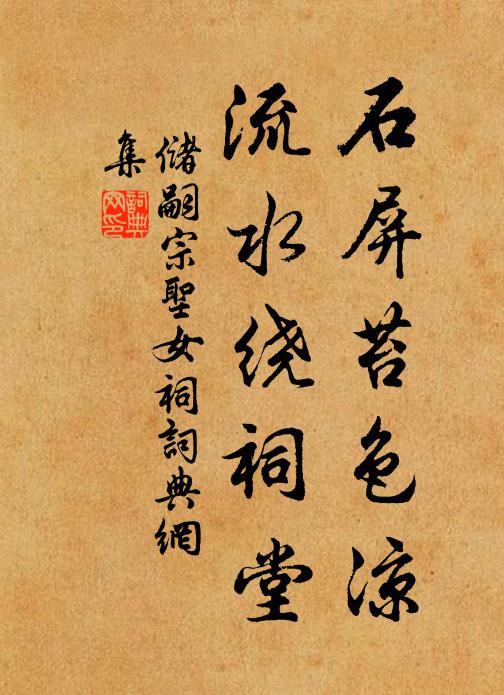 石屏苔色凉
流水绕祠堂
储嗣宗聖女祠詞典網
集
詞典
网印